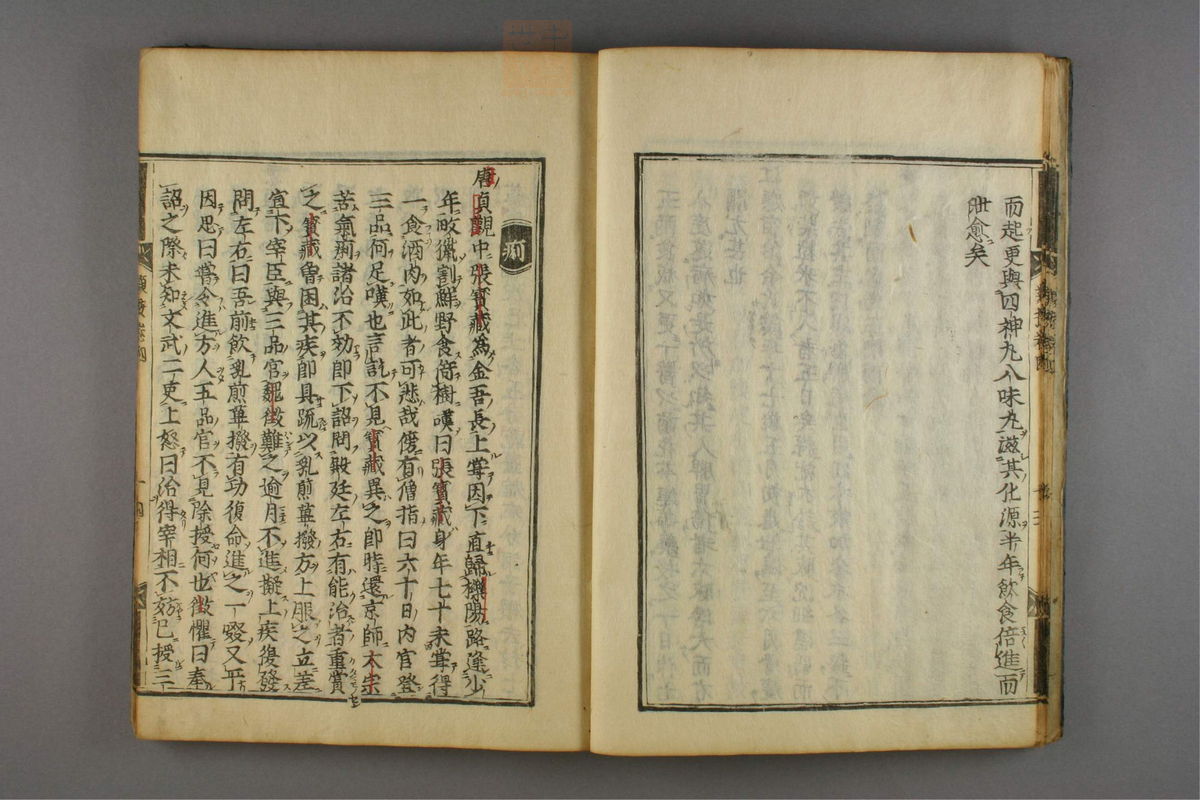 而起更與四神丸八味丸滋其化源半年飲食倍進而
泄愈矣
痢
唐貞觀中張寶藏為金吾長上嘗因下直歸櫟陽路逢少
年畋獵割鮮野食倚樹嘆曰張寶藏身年七十未嘗得
一食酒肉如此者可悲哉傍有僧指曰六十日內官登
三品何足嘆也言訖不見寶藏異之即時還京師太宗
苦氣痢諸治不効即下詔問殿廷左右有能治者重賞
之寶藏曾困其疾即具疏以乳煎蓽撥方上服之立差
宣下宰臣與三品官魏徵難之逾月不進擬上疾復發
問左右曰吾前飲乳煎蓽撥有功復命進之一啜又平
因思曰嘗令進方人五品官不見除授何也徵懼曰奉
詔之際未知文武二吏上怒曰治得宰相不妨已授三